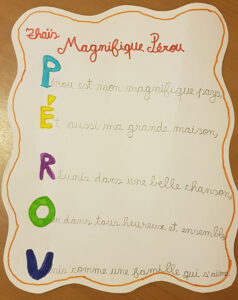 Thaïs
Magnifique Pérou
Pérou est mon magnifique pays,
Et aussi ma grande maison,
Réunis dans une belle chanson,
On dans tous heureux et ensemble,
Unis comme une famille qui s'aime.